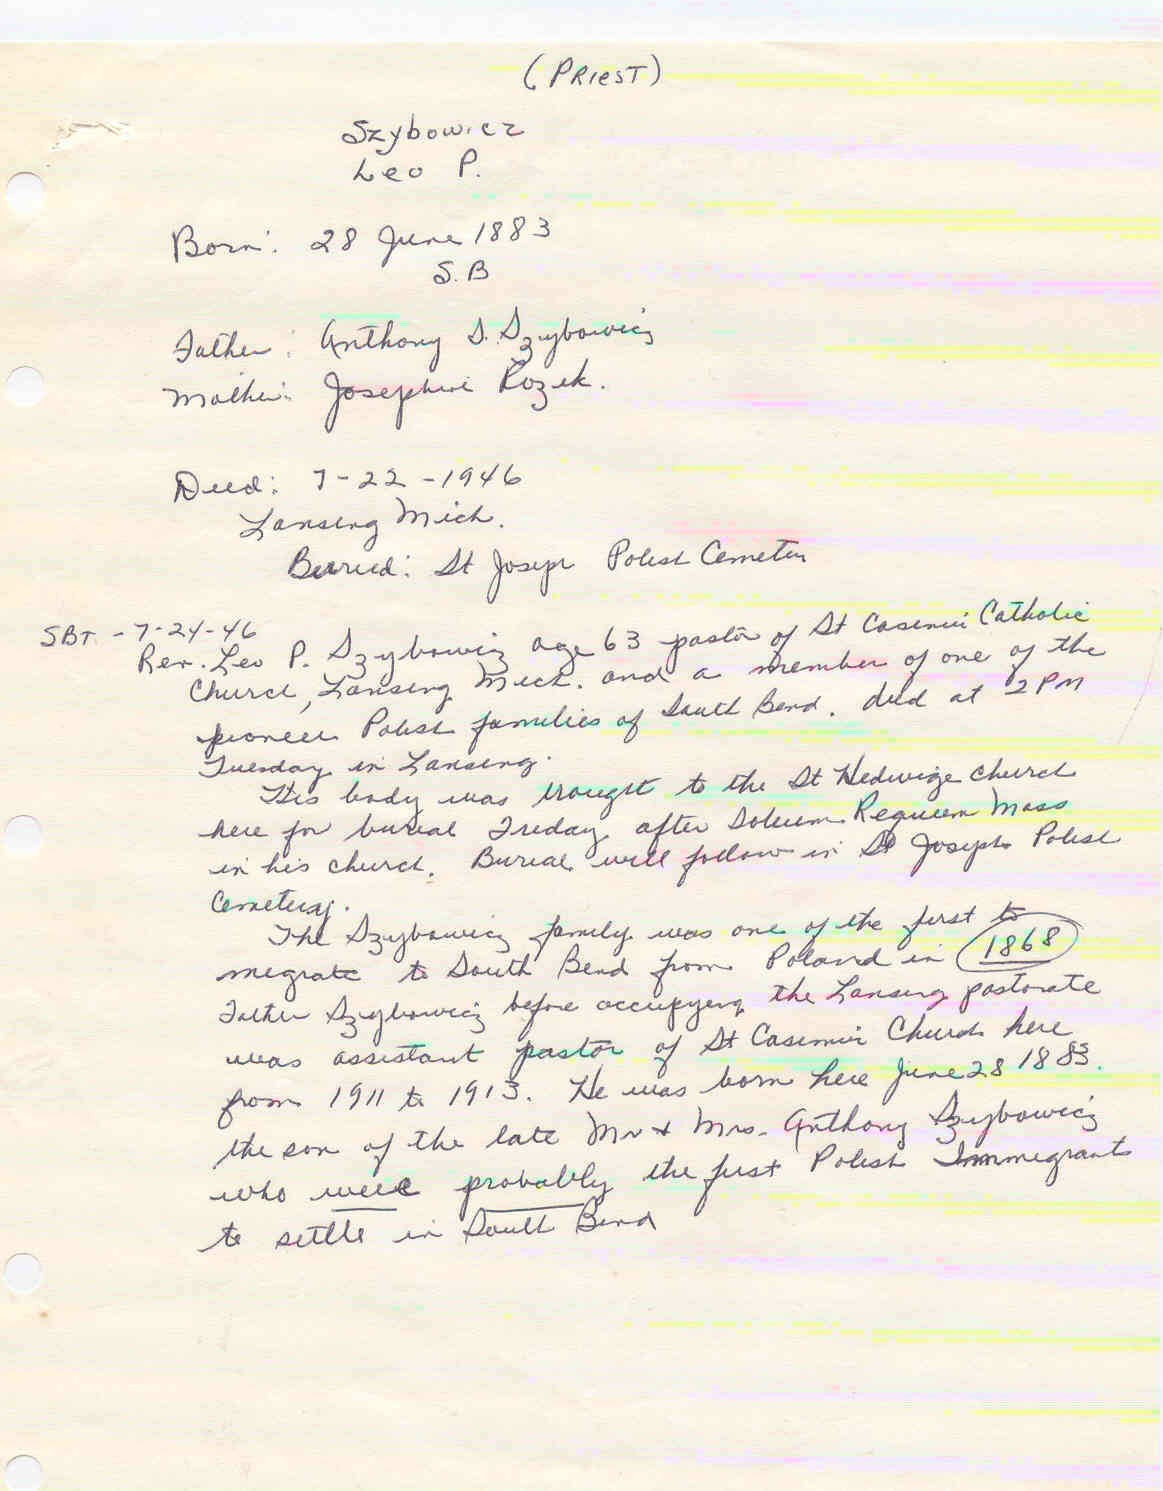 (PRIEST)
Szybowicz
Leo P.
Born: 28 June 1883
S.B
Father: Anthony S. Szybowicz
Mother: Josephine Rozek.
Died: 7-22-1946
Lansing Mich.
Burried: St Joseph Polish Cemetery
SBT. -7-24-46
Rev. Leo P. Szybowicz age 63 pastor of St Casimir Catholic
Church, Lansing Mich. and a member of one of the
pioneer Polish families of South Bend. died at 2 PM
Tuesday in Lansing.
His body was brought to the St Hedwige Church
here for burial Friday after Solemn Requiem Mass
in his church. Burial will follow in St Joseph Polish
Cemetery.
The Szybowicz family was one of the first to
migrate to South Bend from Poland in 1868
Father Szybowicz before occupying the Lansing pastorate
was assistant pastor of St Casimir Church here
from 1911 to 1913. He was born here June 28 1883.
the son of the late Mr + Mrs. Anthony Szybowicz
who were probably the first Polish Immigrants
to settle in South Bend